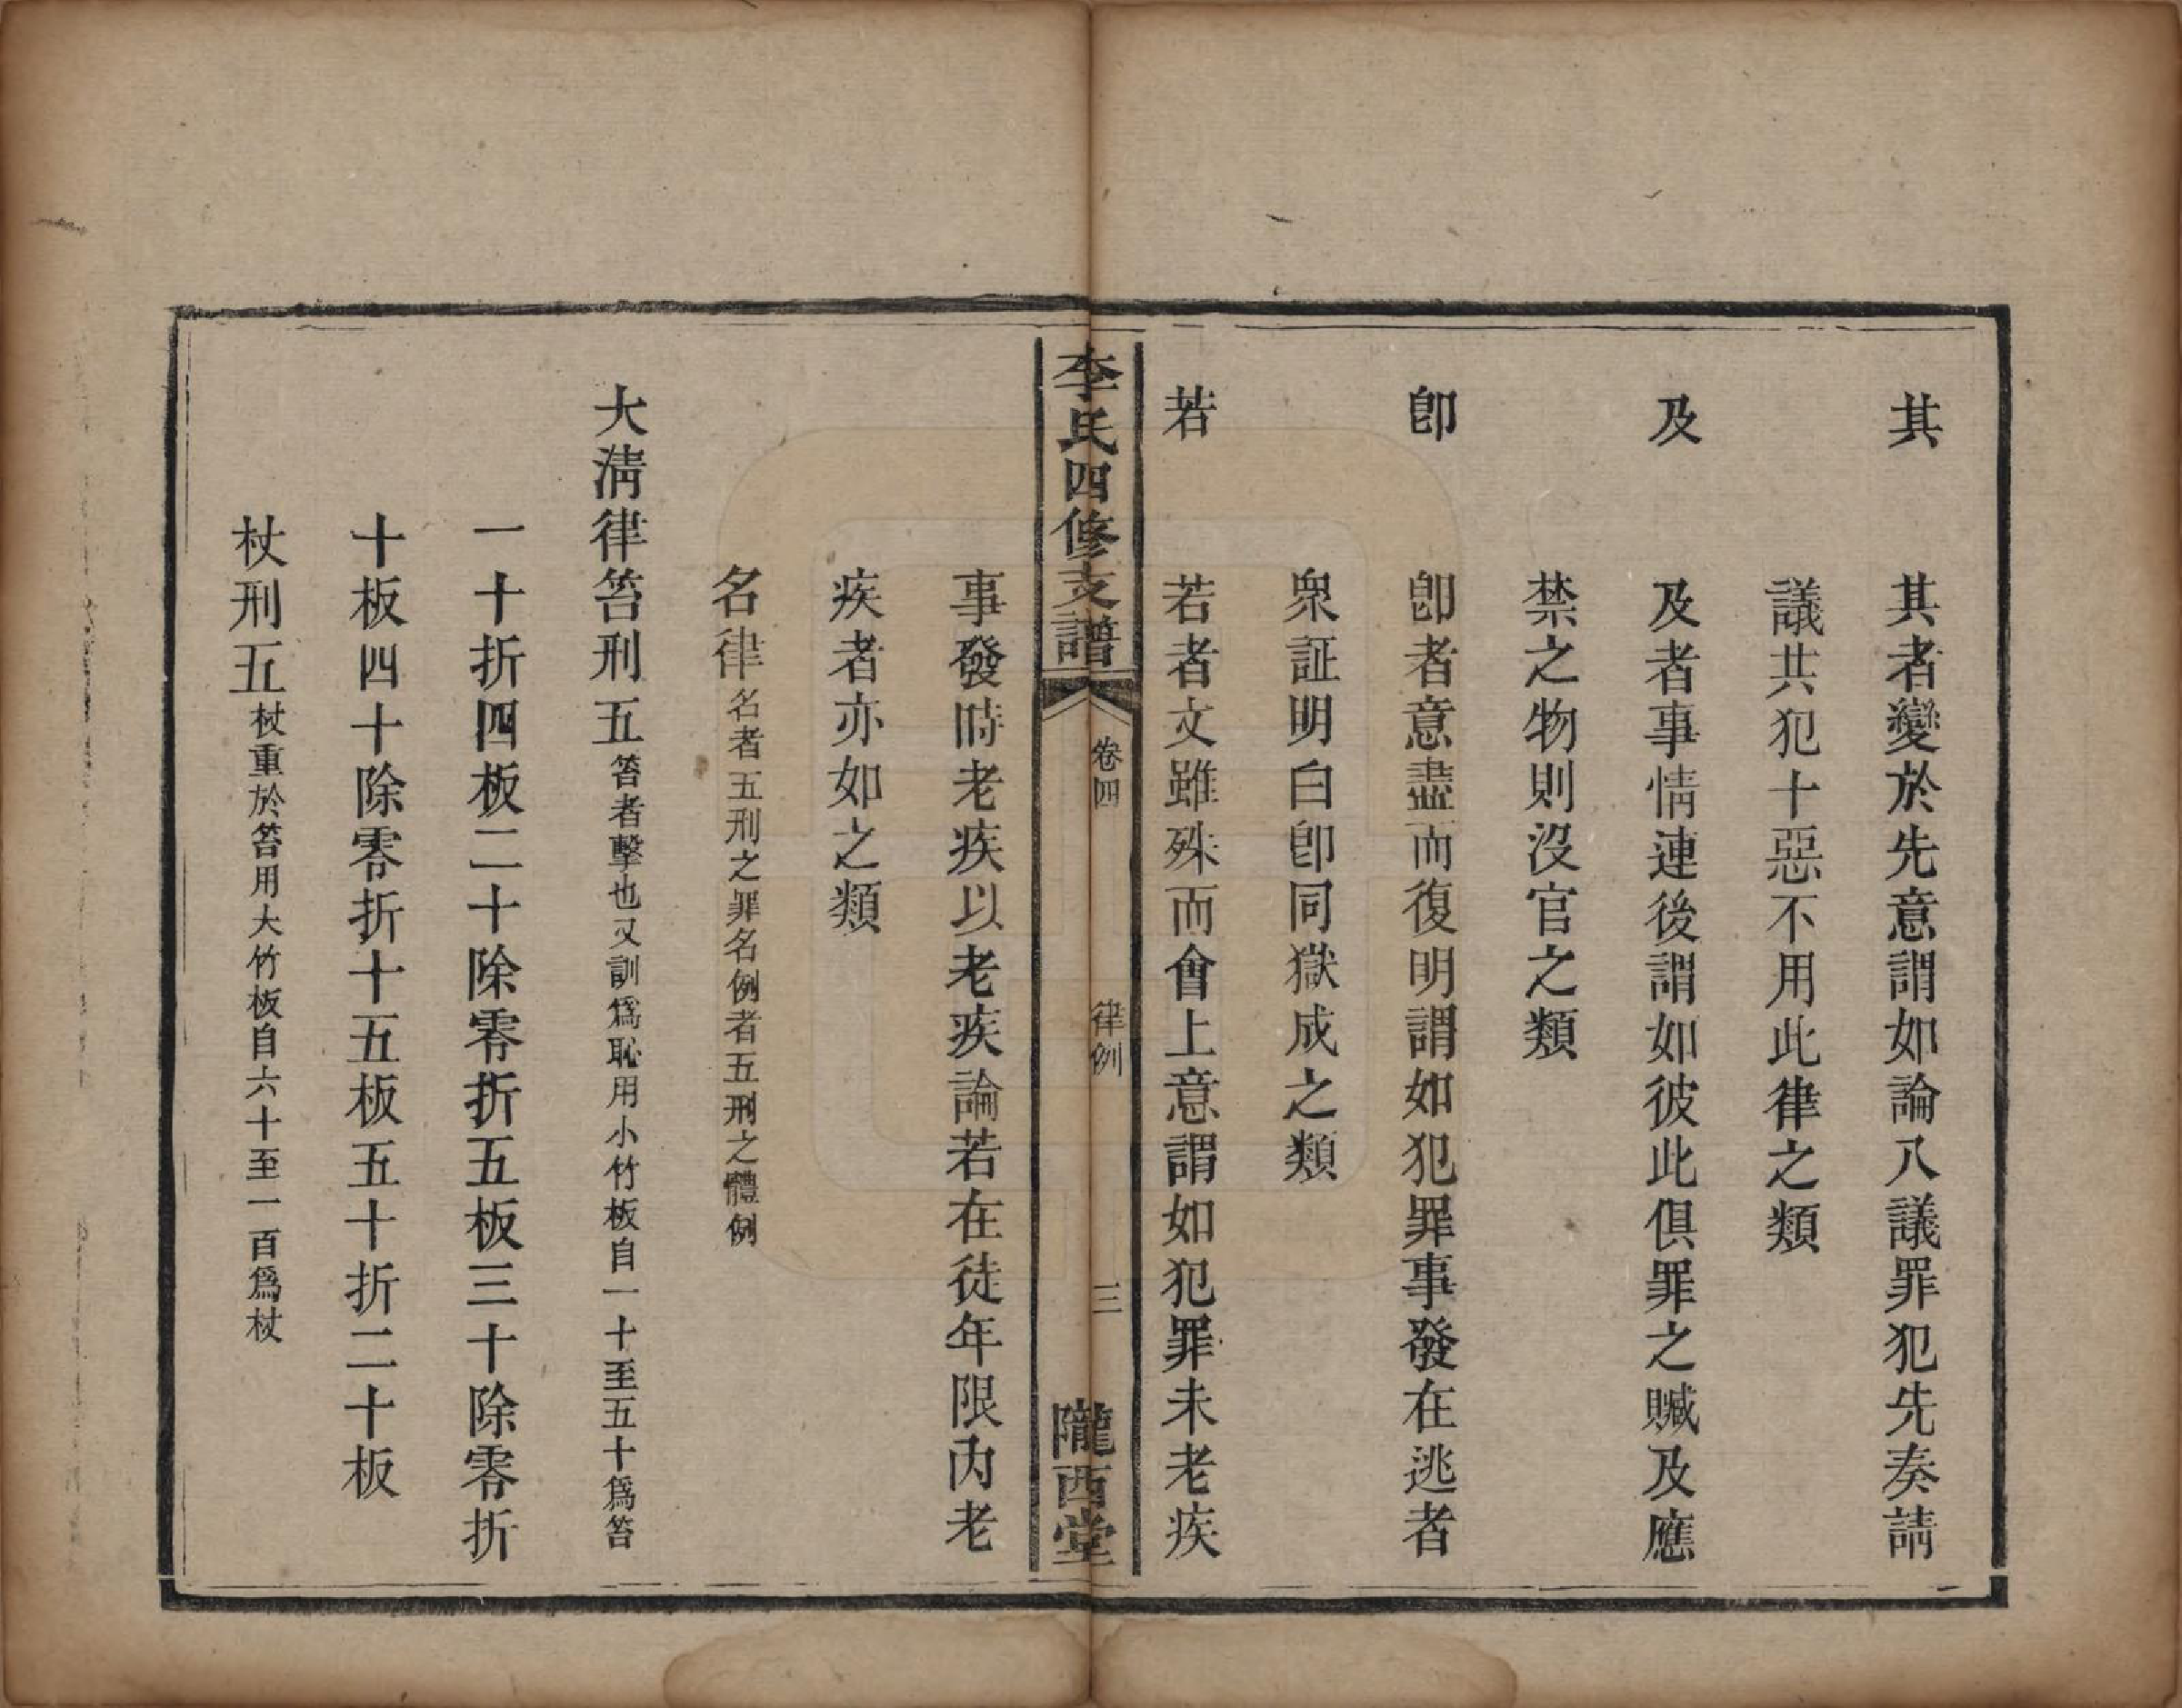 其
其者變於先意謂如論八議罪犯先奏請
議共犯十惡不用此律之類
及
及者事情連後謂如彼此俱罪之贓及應
禁之物則沒官之類
卽
卽者意盡而復明謂如犯罪事發在逃者
衆証明白卽同獄成之類
若
若者文雖殊而會上意謂如犯罪未老疾
李氏四修支譜
卷四
律例
三
隴西堂
事發時老疾以老疾論若在徒年限內老
疾者亦如之類
名律名者五刑之罪名例者五刑之體例
大淸律笞刑五笞者擊也又訓爲恥用小竹板自一十至五十爲笞
一十折四板二十除零折五板三十除零折
十板四十除零折十五板五十折二十板
杖刑五杖重於笞用大竹板自六十至一百爲杖